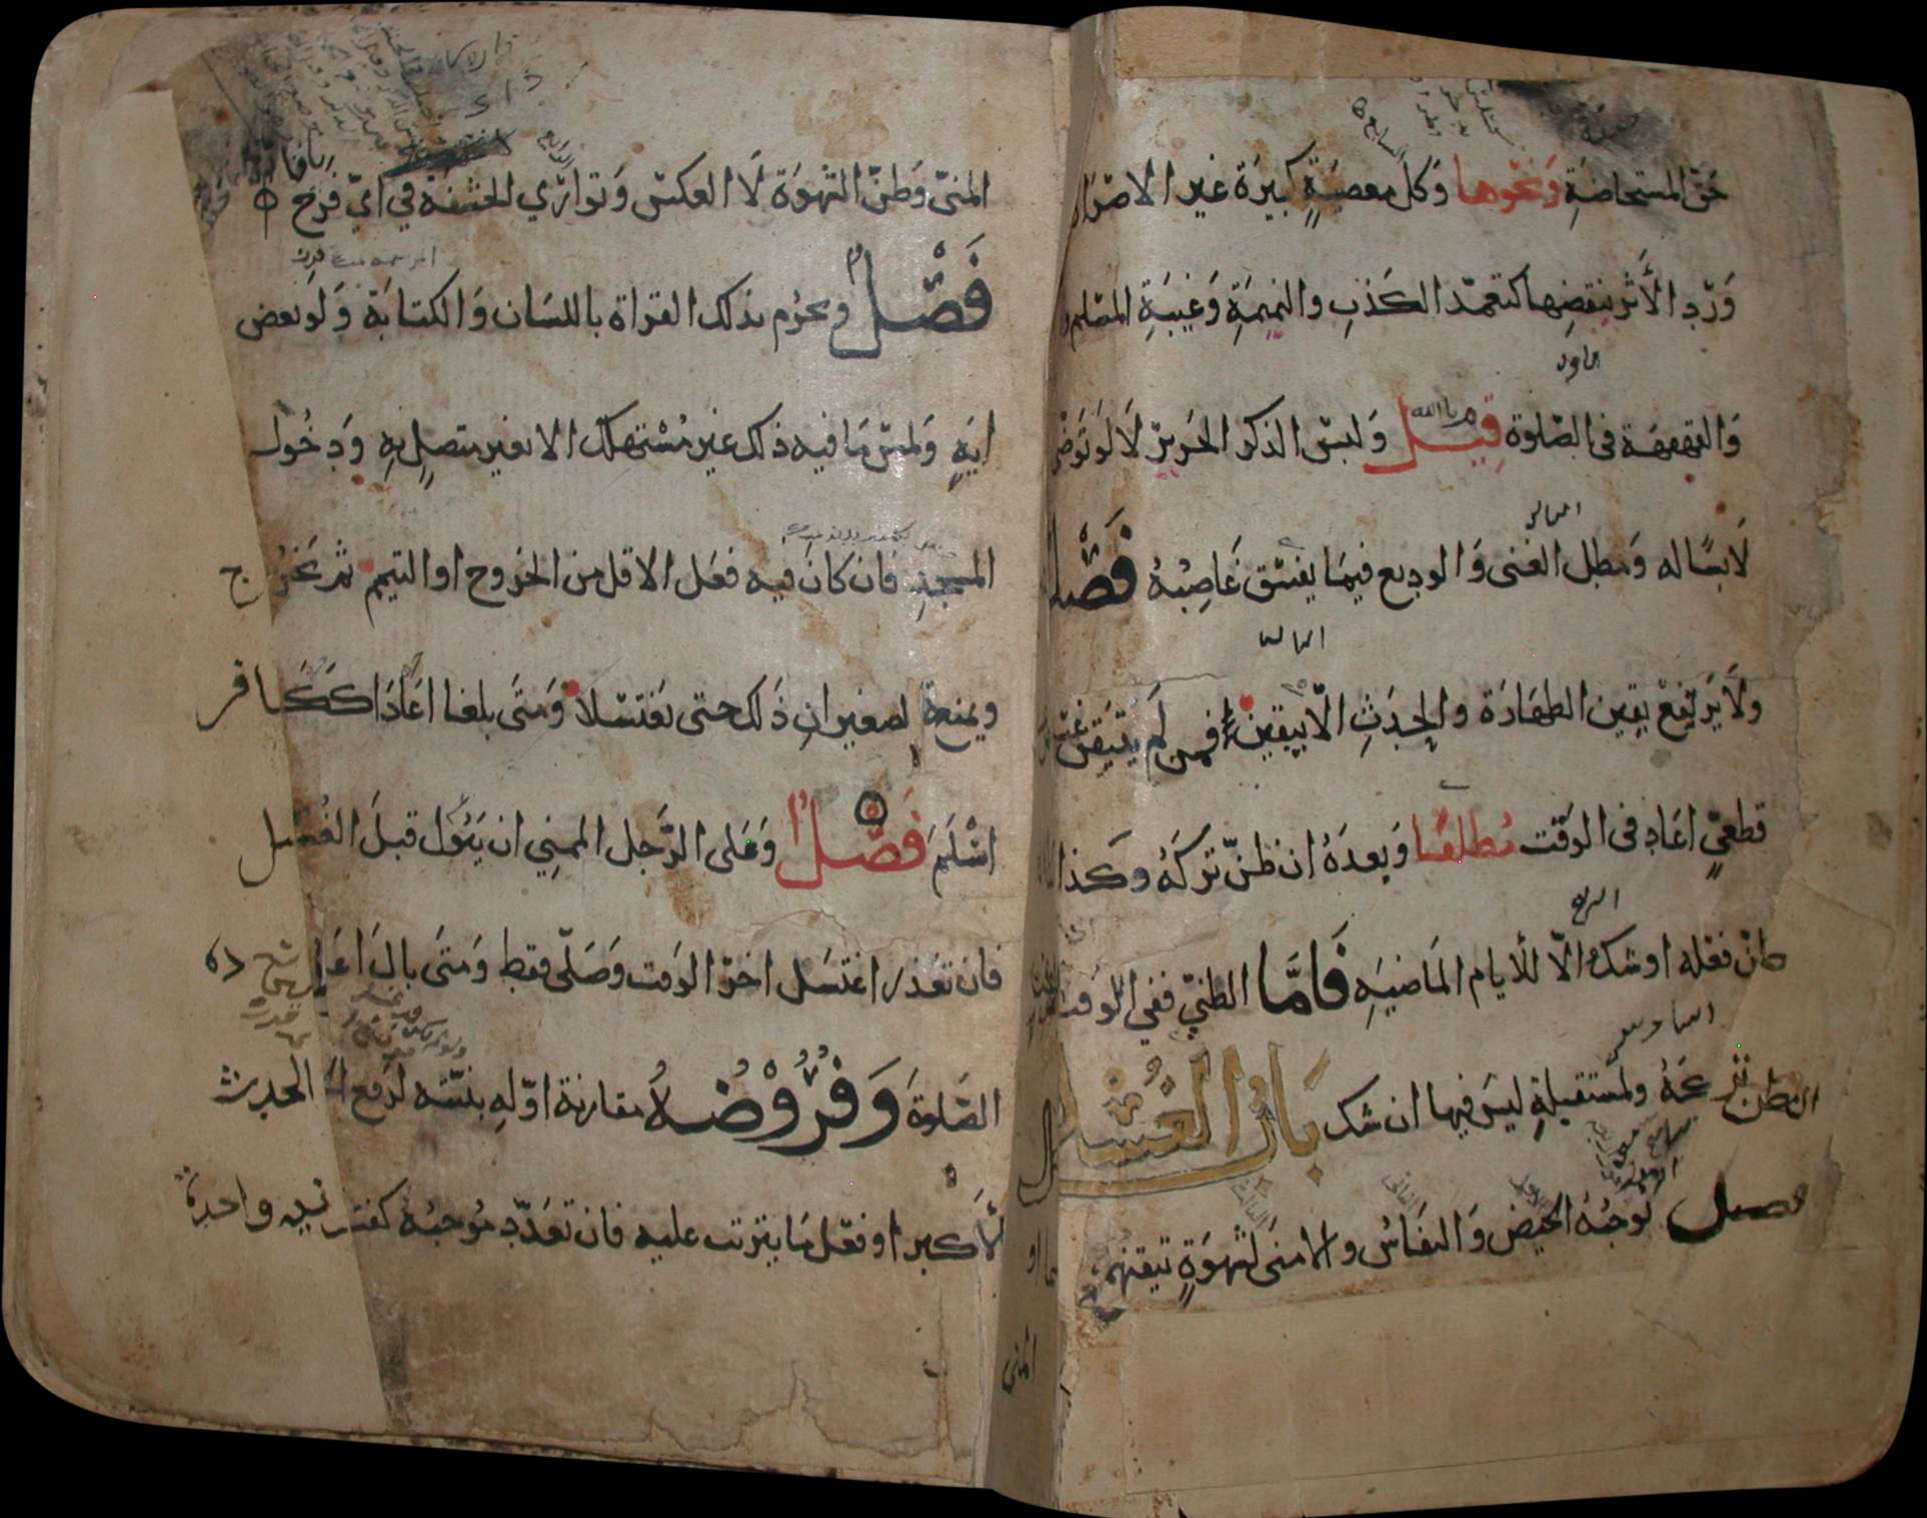 حق المستحاضةِ وَنحوها وَكل معصيةٍ كبيرَة غير الاصرَار
وَرد الأثر بنقضِها كتعمّد الكَذبِ والنميمَةِ وَغيبَةِ المسْلم و
وَالقهقهَة في الصّلوة قِيل وَلبسْ الذكر الحَريرَ لَا لَو تَوضى
لَابسًا له وَمطل الغنى وَالوديع فيمَا يفسّق غَاصِبُهُ فَصْل
ولَا يَرتفِعْ يقين الطهَارَة والحَدَثِ الّا بيقين فمن لَم يتيقن غسْل
قطعيٍّ اعَاد في الوَقت مُطلقًا وَبعدَهُ ان ظنّ تركَهُ وكَذا
ظنّ فعْله او شك الّا للأيام المَاضيَهِ فَامَّا الظنيّ ففي الوَقت
ان ظن تركهُ ولمستقبلةٍ ليسَ فيها ان شك بَابُ الغُسْل
فصل مُوجبُهُ الحَيض وَالنفاسُ والامنَى لشهوَةٍ تيقنهما او
المنى
المنىّ وَظنّ الشهوَة لَا العكسْ وَتوارَي الحشفة في ايّ فرج
فَصْلٌ وَيحرُم بذلك القراة باللسَان وَالكتابَة وَلَو بعض
ايَهٍ وَلمسْ مَا فيه ذلك غير مُسْتهلك الا بغير متصِلٍ بهِ وَدخُول
المسجدِ فان كانَ فيه فعَل الاقل من الخروح او التيمم ثم يَخرُج
ويمنعُ الصغيرانِ ذَلك حتى يغتسْلا وَمتَى بلغا اعَادَا ككَافر
اسْلَم فَصْلٌ وَعَلى الرّجل الممنِي ان يَبُول قبلَ الغُسْل
فان تعَذر اغتسَل اخرَ الوَقت وَصَلّى فقط وَمتَى بالَ اعَاد لا
الصّلوة وَفُرُوْضُهُ مقارنة اوّلهِ بنيّته لرَفع الحدث
الأكبر او فعْل مَا يترتب عليه فان تعَدّد مُوجبُهُ كفت نيه واحدة